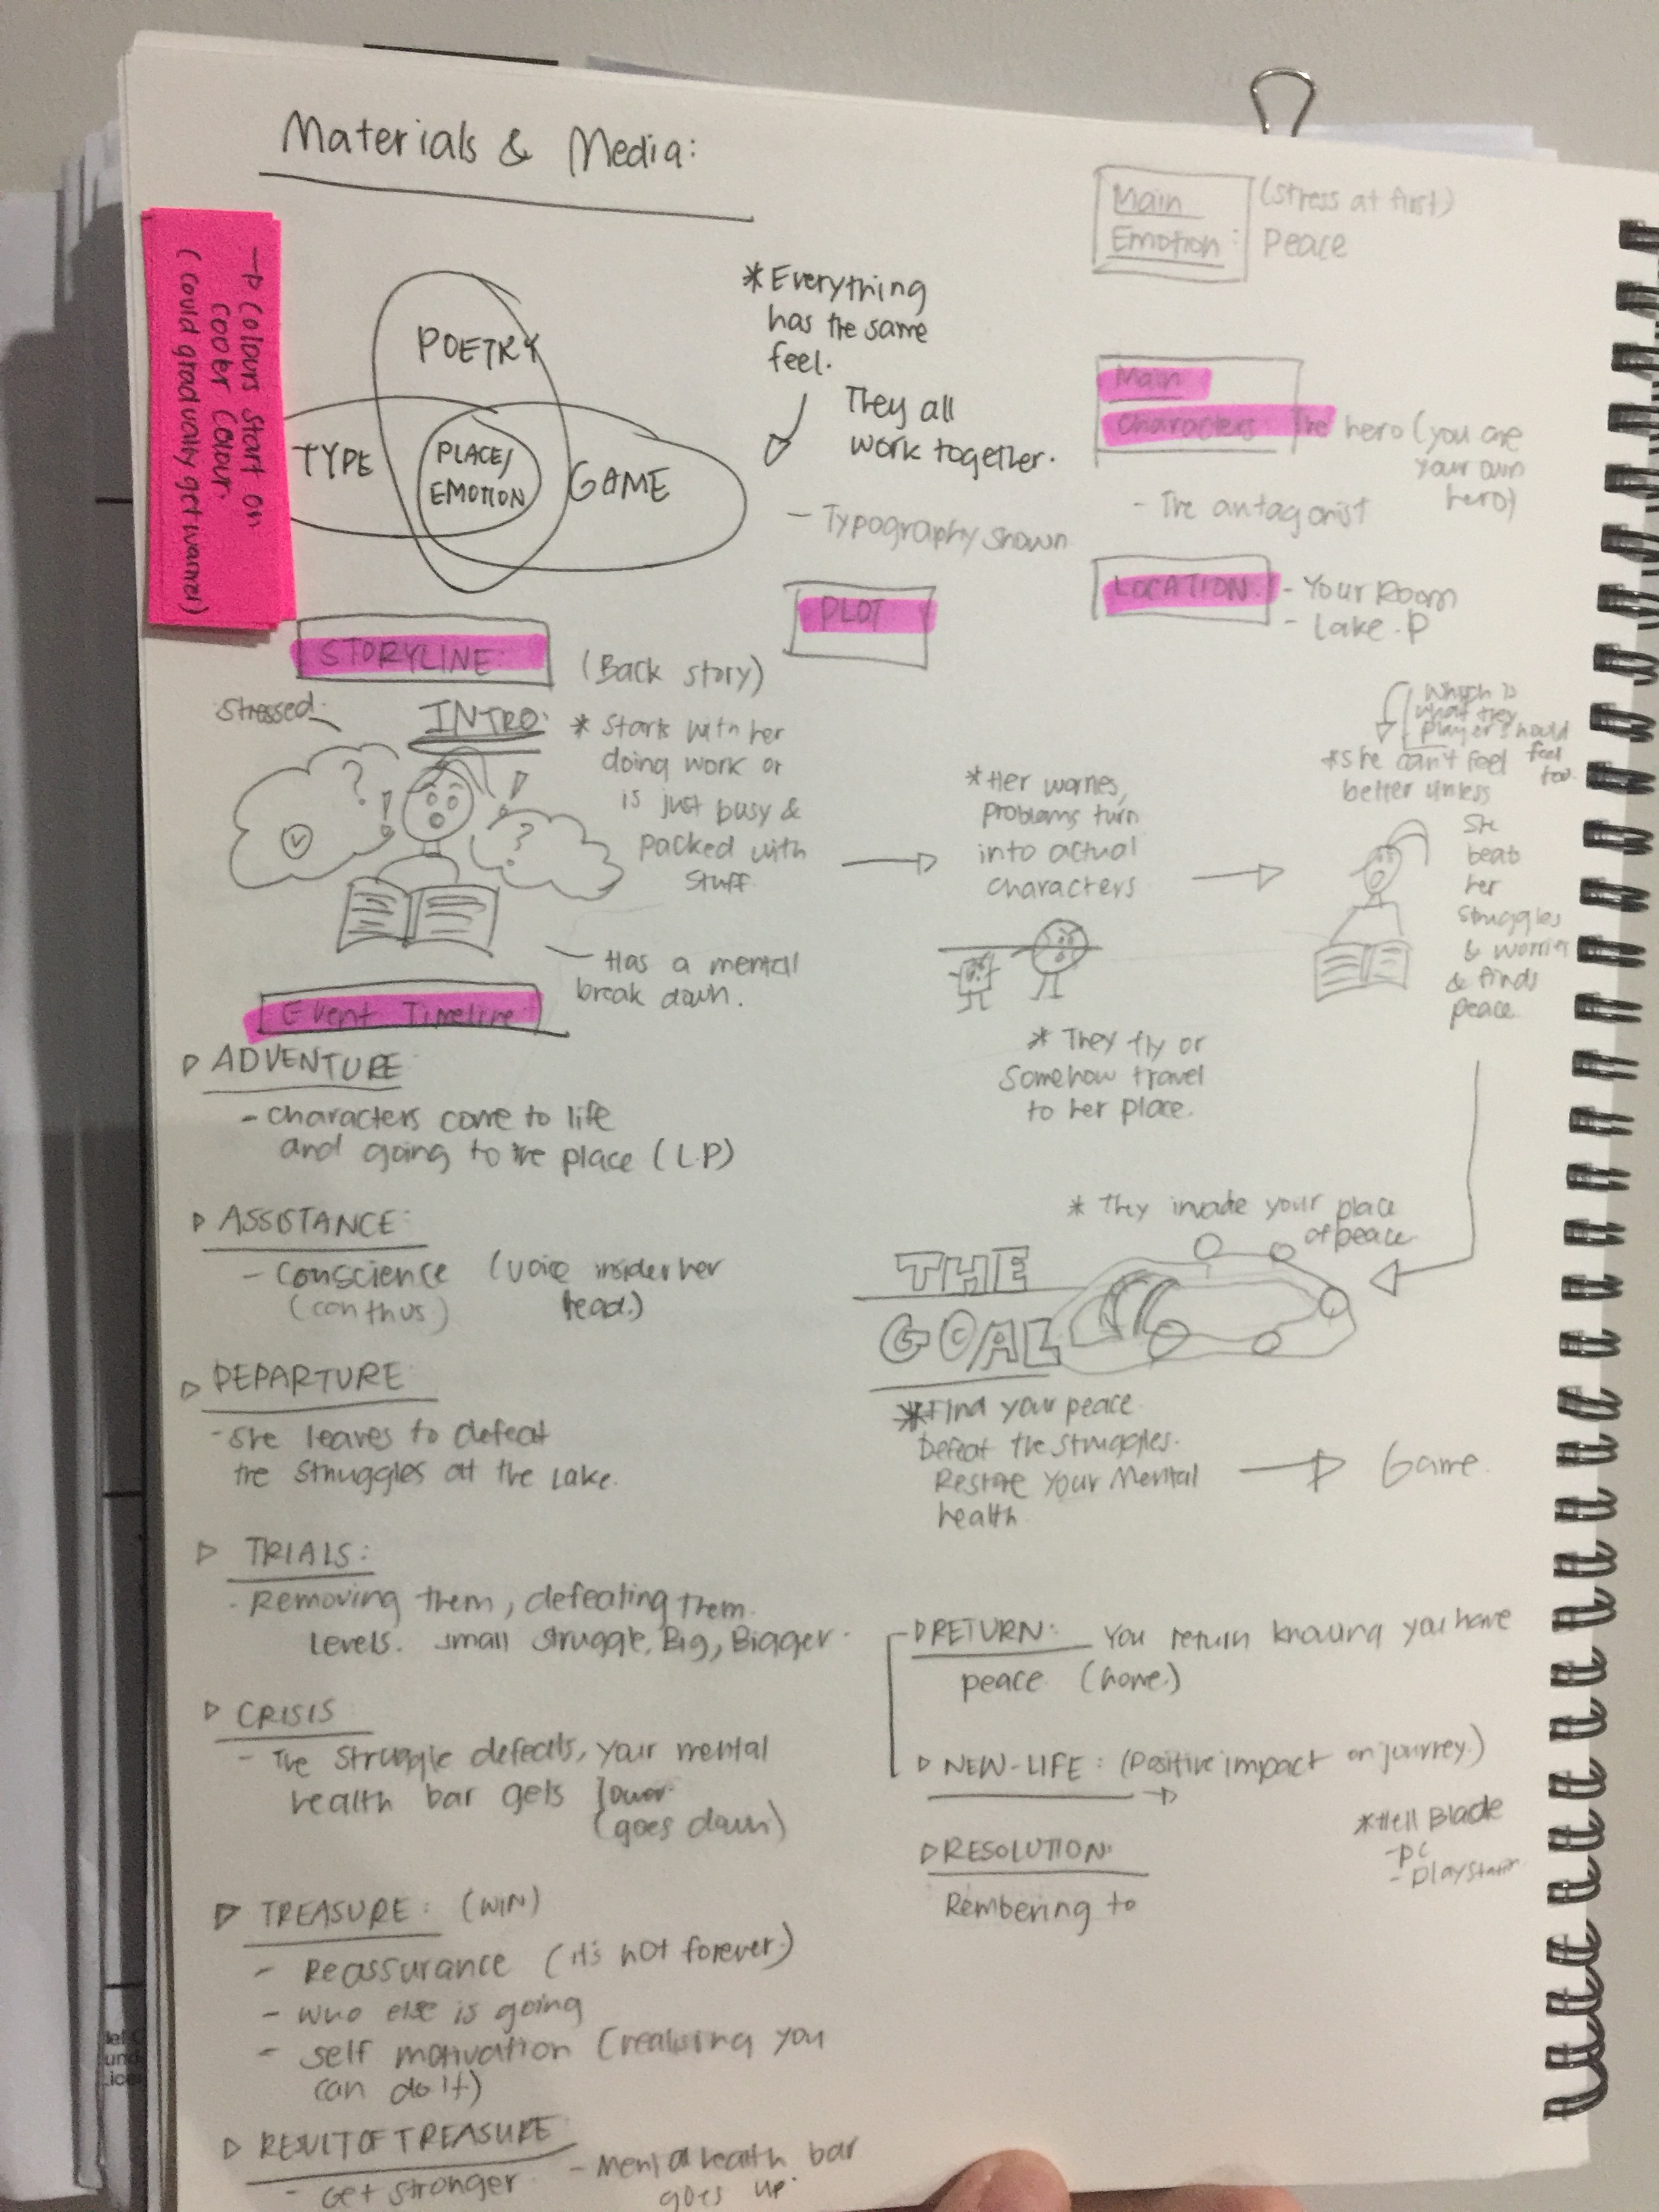 Materials & Media:
→ Colours start on
cooler colour.
(could gradually get warmer)
POETRY
TYPE
PLACE/
EMOTION
GAME
* Everything
has the same
feel.
They all
work together.
- Typography shown
Main
Emotion:
(stress at first)
Peace
Main
Characters: The hero (you are
your own
hero)
- The antagonist
LOCATION:
- Your Room
- Lake .P
PLOT
STORYLINE:
(Back story)
Stressed.
INTRO:
* Starts with her
doing work or
is just busy &
packed with
stuff
- Has a mental
break down.
* Her worries,
problems turn
into actual
characters
* They fly or
somehow travel
to her place.
which is
what they
player should
feel
too.
* she can't feel
better unless
she
beats
her
struggles
& worries
& finds
peace.
* They invade your place
of peace.
THE
GOAL
* Find your peace.
Defeat the struggles.
Restore Your Mental
health
Game.
Event Timeline:
ADVENTURE
- characters come to life
and going to the place (L.P)
ASSISTANCE:
- Conscience (voice insider her
head.)
DEPARTURE
- she leaves to defeat
the struggles at the Lake.
TRIALS:
- Removing them, defeating them.
Levels. small struggle, Big, Bigger.
CRISIS
- The struggle defeats, your mental
health bar gets lower.
(goes down)
TREASURE: (WIN)
- Reassurance (it's not forever)
- who else is going
- self motivation (realising you
can do it)
RESULT OF TREASURE
- Get stronger
- Mental health bar
goes up.
RETURN: You return knowing you have
peace (home.)
NEW-LIFE: (positive impact on journey.)
RESOLUTION:
Rembering to
* Hell Blade
- PC
- playstation